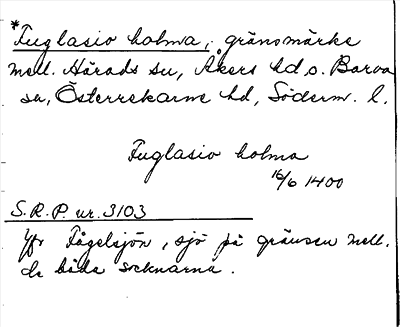 *Fuglasio holma, gränsmärke
mell. Härads sn, Åkers hd o. Barva
sn, Österrekarne hd, Söderm. l.
Fuglasio holma
16/6 1400
S.R.P. nr. 3103
Jfr Fågelsjön, sjö på gränsen mell.
de båda socknarna.